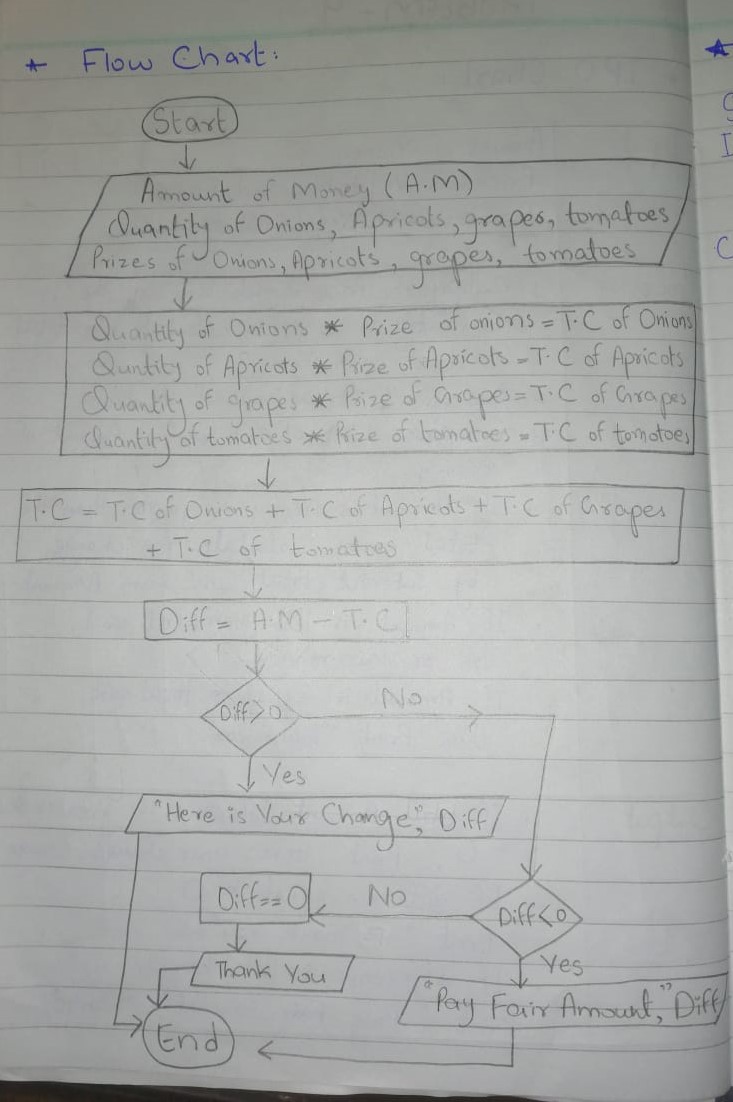 * Flow Chart:
Start
Amount of Money (A.M)
Quantity of Onions, Apricots, grapes, tomatoes
Prizes of Onions, Apricots, grapes, tomatoes
Quantity of Onions * Prize of onions = T.C of Onions
Quntity of Apricots * Prize of Apricots = T.C of Apricots
Quantity of grapes * Prize of Grapes = T.C of Grapes
Quantity of tomatoes * Prize of tomatoes = T.C of tomotoes
T.C = T.C of Onions + T.C of Apricots + T.C of Grapes
+ T.C of tomatoes
Diff = A.M - T.C
Diff>0
No
Yes
"Here is Your Change", Diff
Diff==0
No
Diff<0
Thank You
Yes
"Pay Fair Amount," Diff
End